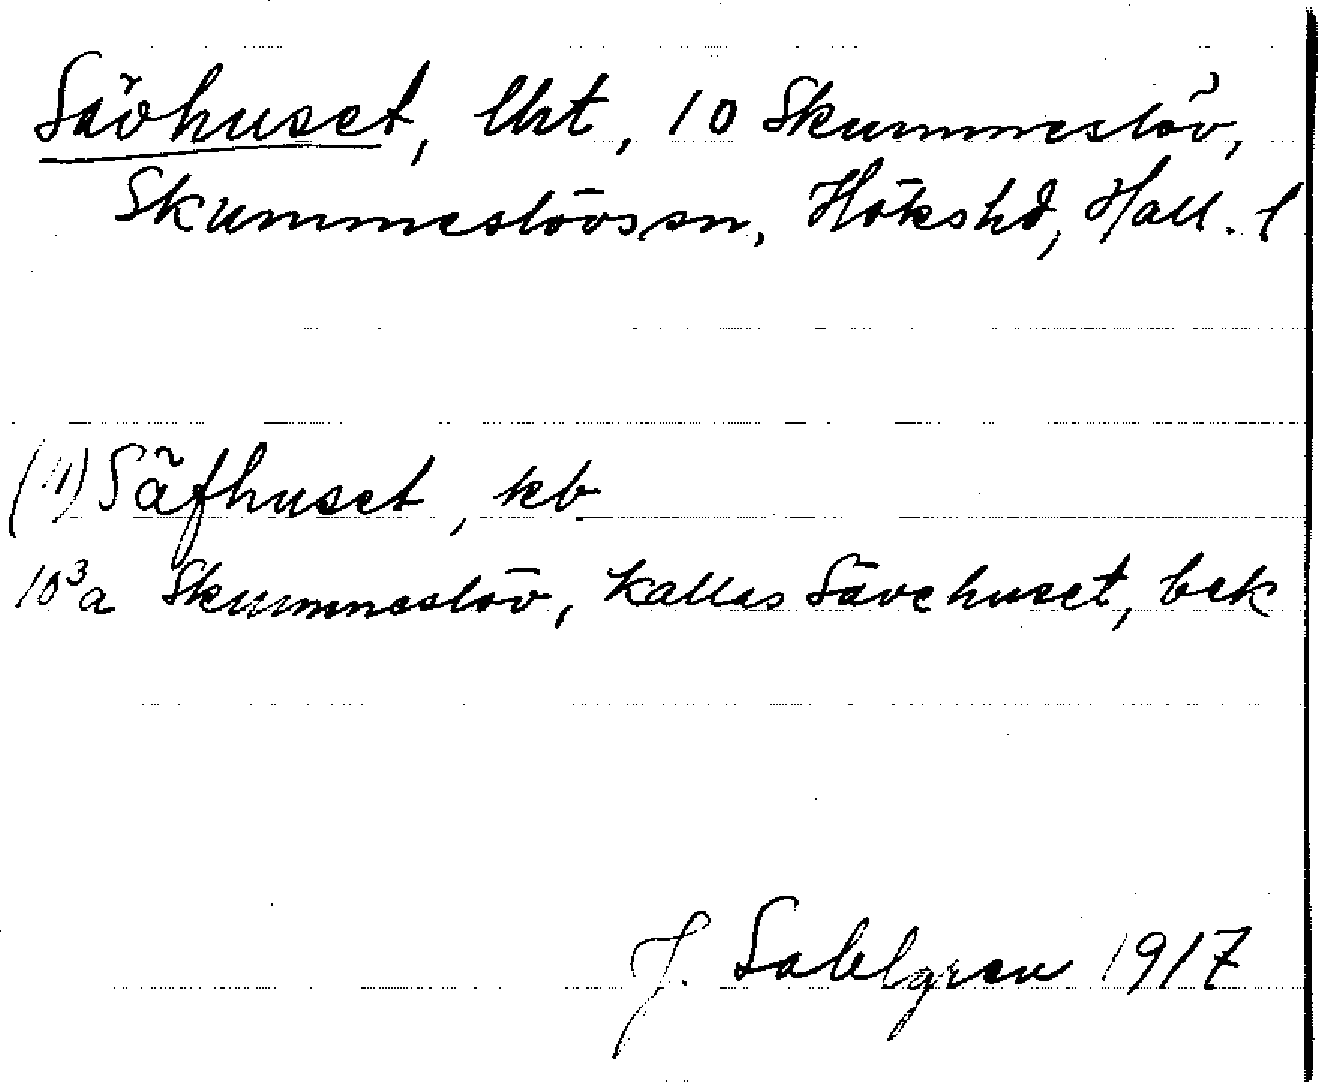 Sävhuset, lht, 10 Skummeslöv,
Skummeslövs sn, Höks hd, Hall. l
(1) Säfhuset, kb
10³a Skummeslöv, kallas Sävehuset, bek
J. Sahlgren 1917